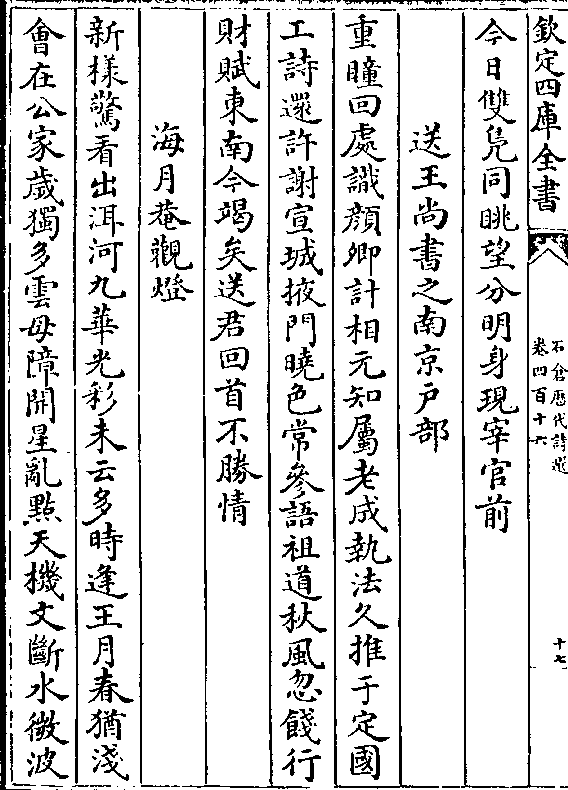 欽定四庫全書
石倉歷代詩選
卷四百十六
十七
今日雙鳬同眺望分明身現宰官前
送王尚書之南京戶部
重瞳回處識顔卿計相元知屬老成執法久推于定國
工詩還許謝宣城掖門曉色常參語祖道秋風忽餞行
財賦東南今竭矣送君回首不勝情
海月菴觀燈
新様驚看出洱河九華光彩未云多時逢王月春猶淺
會在公家歲獨多雲母障開星亂點天機文斷水微波